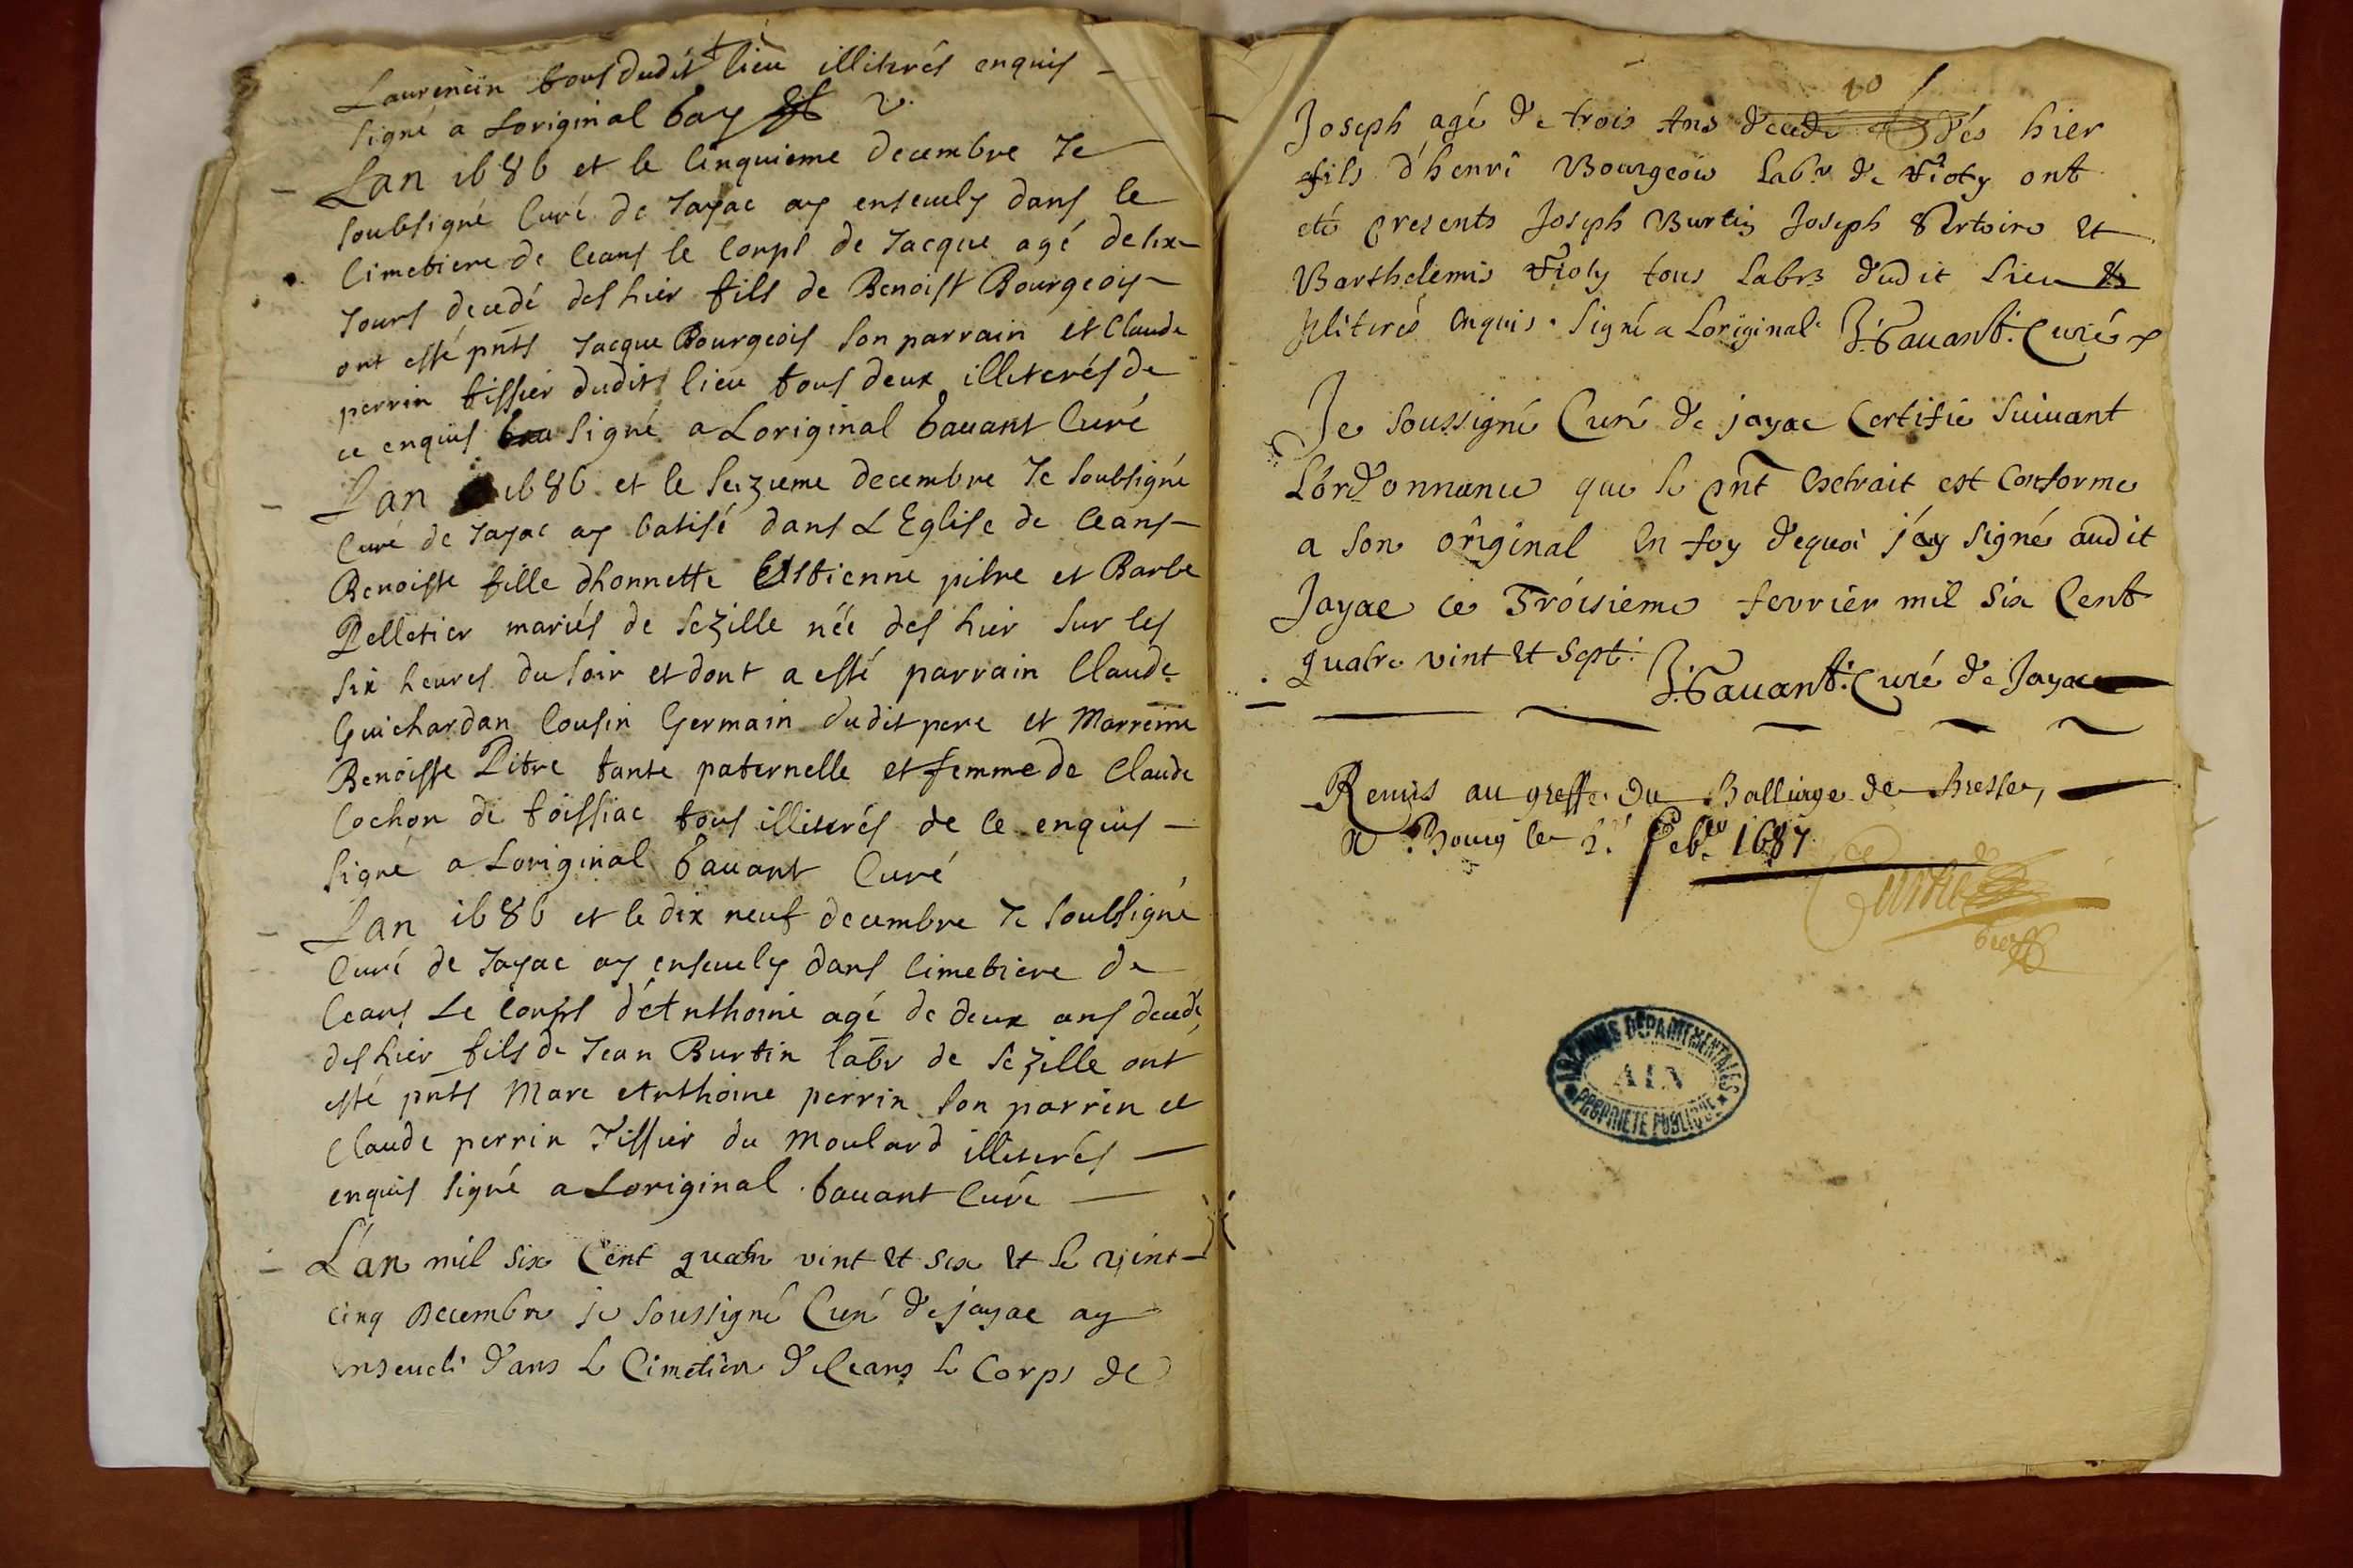 Laurencin tous dudit lieu illiterés enquis
signé a Loriginal bay
Lan 1686 et le cinquieme decembre Je
soubsigné Curé de Jayac ay enseuely dans le
Cimetiere de ceans le Corps de Jacque agé de six
Jours decedé des hier fils de Benoist Bourgeois
ont esté pnts Jacque Bourgeois son parrain et Claude
perrin tissier dudit lieu tous deux illiterés de
ce enquis signé a Loriginal bauant Curé
Lan 1686 et le seizieme decembre Je soubsigné
Curé de Jayac ay batisé dans L Eglise de ceans
Benoiste fille dhonnette Estienne pitre et Barbe
Pelletier mariés de sezille née des hier sur les
six heures du soir et dont a esté parrain Claude
Guichardan Cousin Germain dudit pere et Marreine
Benoiste Pitre tante paternelle et femme de Claude
Cochon de foissiac tous illiterés de ce enquis
signé a Loriginal bauant Curé
Lan 1686 et le dix neuf decembre Je soubsigné
Curé de Jayac ay enseuely dans Cimetiere de
Ceans Le Corps d'Anthoine agé de deux ans decedé
des hier fils de Jean Burtin labr de sezille ont
esté pnts Marc Anthoine perrin son parrin et
Claude perrin Tissier du Moulard illiterés
enquis signé a Loriginal bauant Curé
L'an mil six Cent quatre vint et six et le vint
cinq Decembre je soussigné Curé de jayac ay
enseueli dans le Cimetiere de Ceans le Corps de
10
Joseph agé de trois Ans decedé dés hier
fils d'henri Bourgeois Labr de Fioty ont
eté presents Joseph Burtin Joseph et
Barthelemis Fioty tous Labrs dudit Lieu
Illiterés Enquis signé a Loriginal Bauant Curé
Je soussigné Curé de jayac Certifie suiuant
L'ordonnance que le pnt Extrait est Conforme
a son original En foy dequoi j'ay signé audit
Jayac ce Troisieme fevrier mil six Cent
quatre vint et sept. Bauant Curé de Jayac
Remis au greffe du Balliage de bresse,
a Bourg le feb. 1687
ARCHIVES DÉPARTEMENTALES
AIN
PROPRIÉTÉ PUBLIQUE